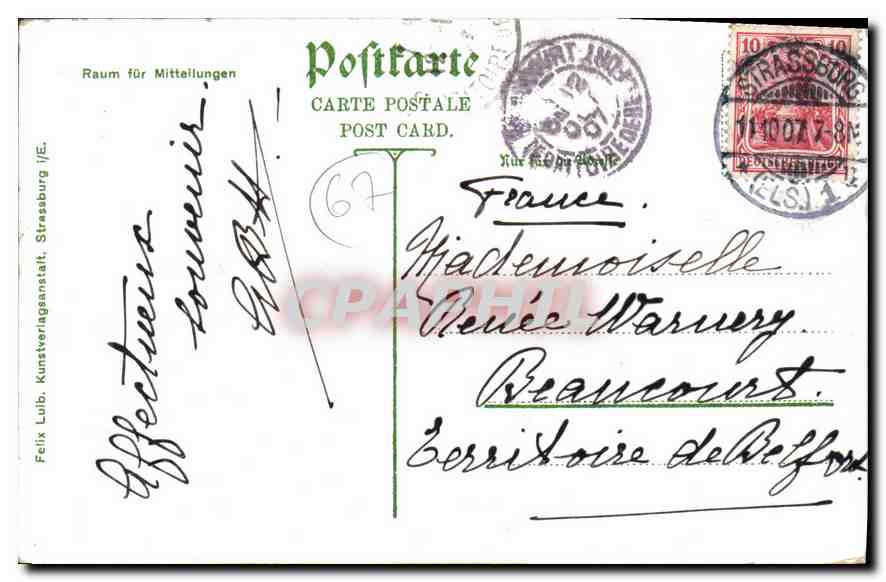 Raum für Mitteilungen
Postkarte
CARTE POSTALE
POST CARD.
Nur für die Adresse
10 10
DEUTSCHES REICH
STRASSBURG
11.10.07.7-8N.
* (ELS.) 1
Affectueux
souvenir.
67
France.
Mademoiselle
Renée Warnery.
Beaucourt.
Territoire de Belfort
Felix Luib. Kunstverlagsanstalt, Strassburg i/E.
CPARHTL